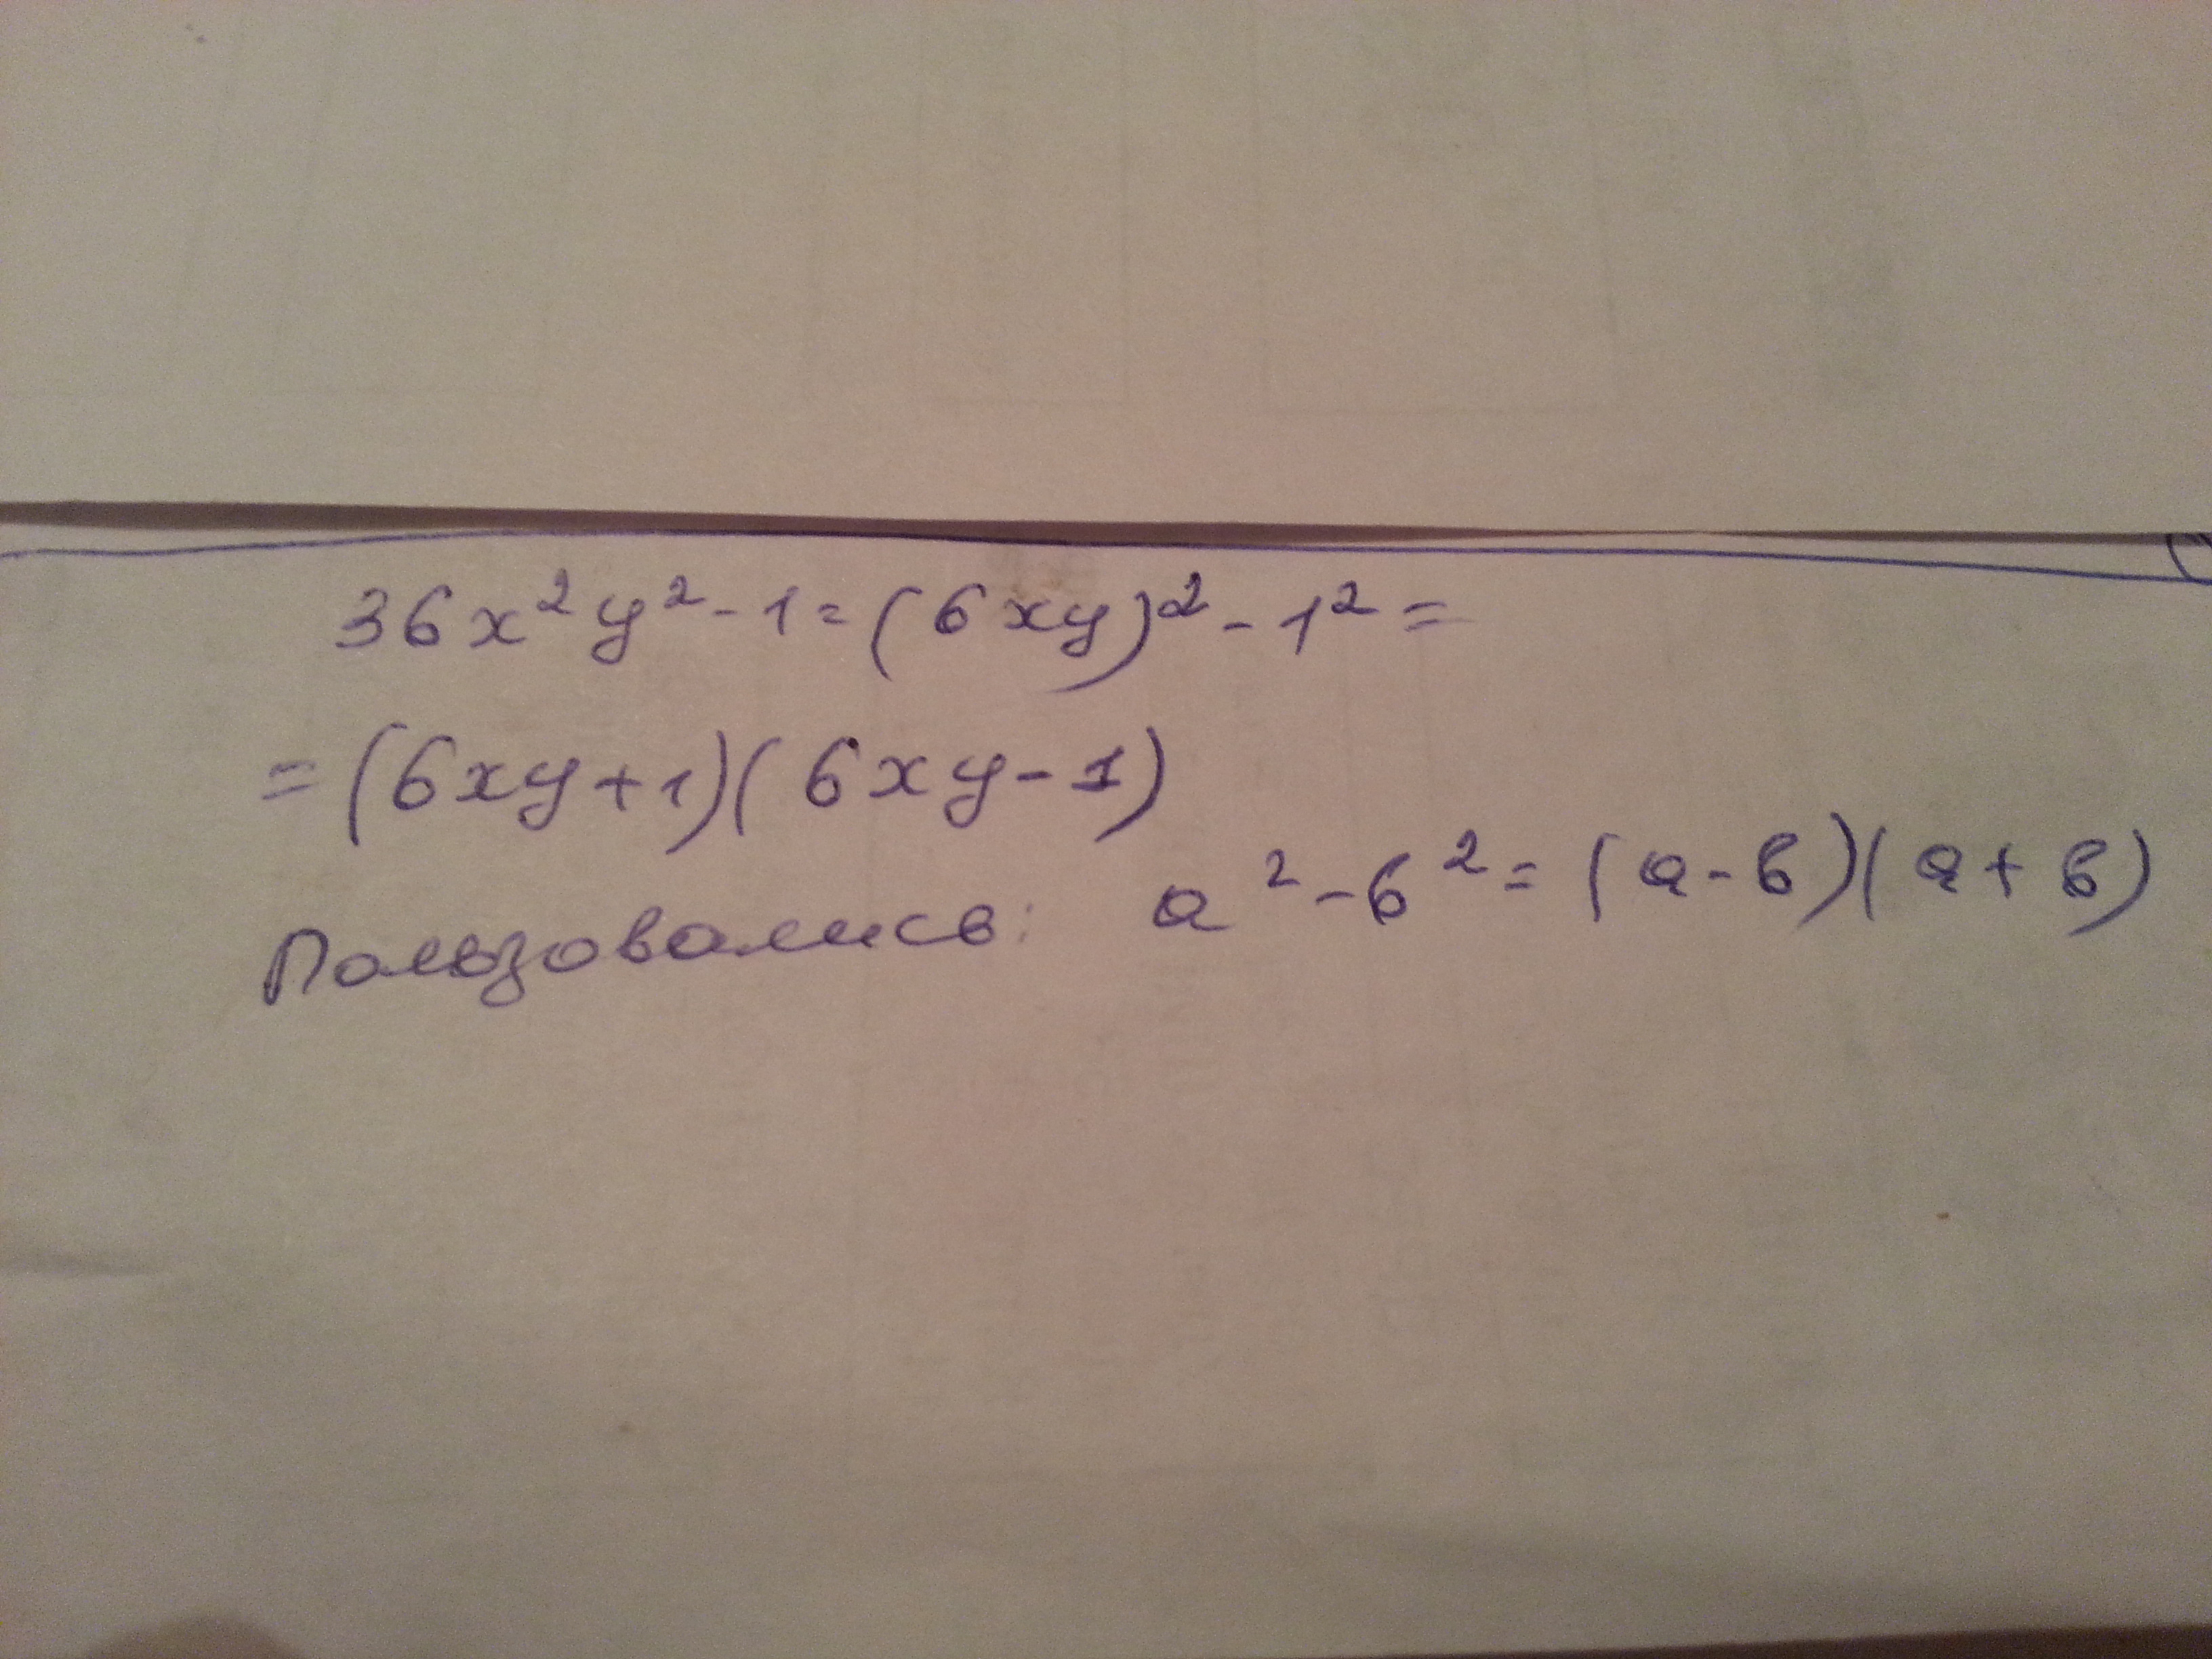 36x²y² - 1 = (6xy)² - 1² =
= (6xy + 1)(6xy - 1)
Пользовались: a² - b² = (a - b)(a + b)